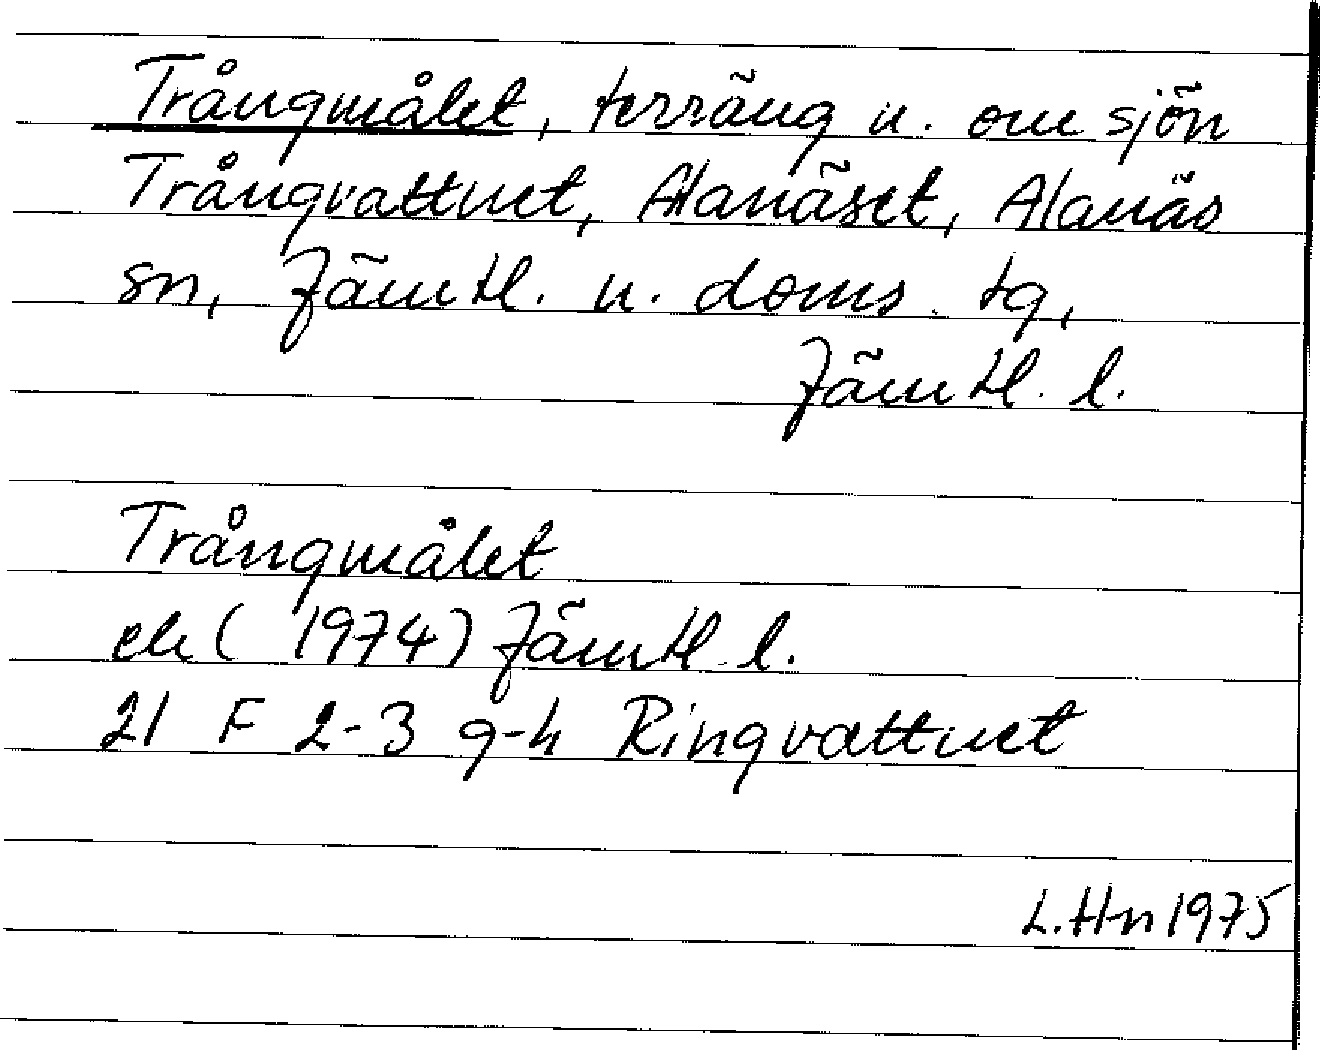 Trångmålet, terräng n. om sjön
Trångvattnet, Alanäset, Alanäs
sn, Jämtl. n. doms. tg,
Jämtl. l.
Trångmålet
ek ( 1974) Jämtl. l.
21 F 2-3 g-h Ringvattnet
L.Hn 1975